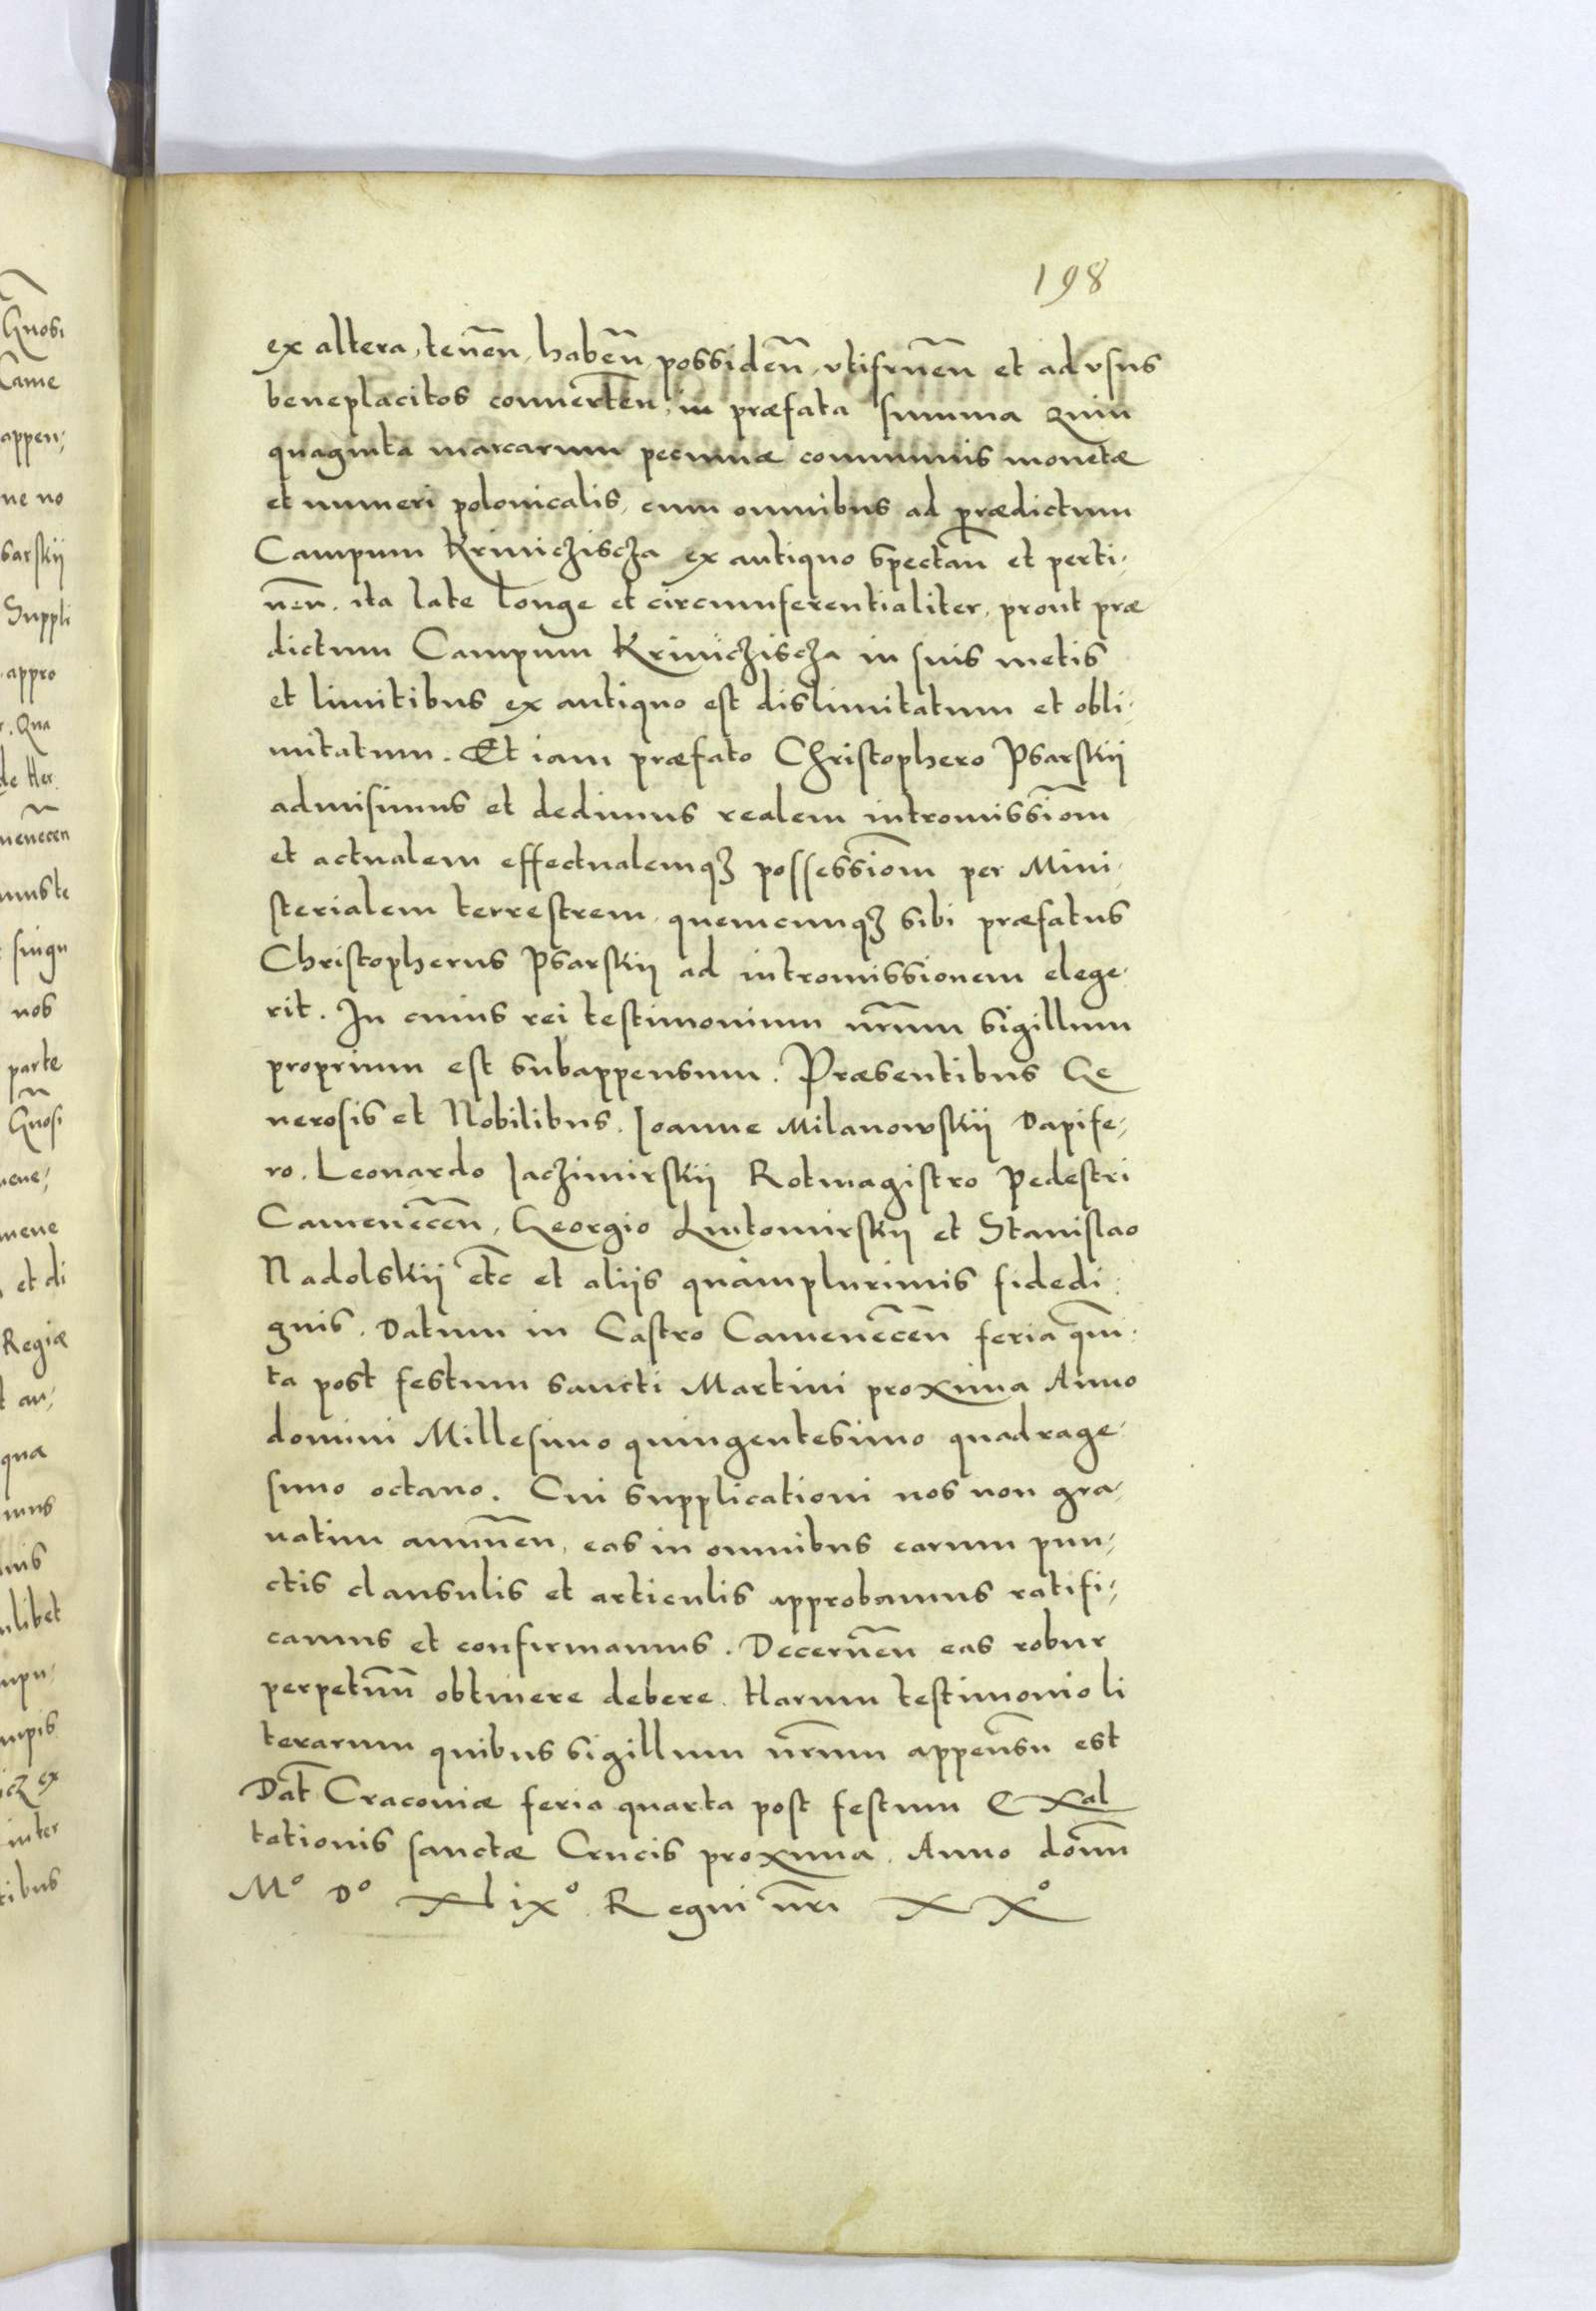 198
ex altera, teneñ, habeñ, possideñ, vtifrueñ et ad vsus
beneplacitos conuerteñ, in præfata summa Quin
quaginta marcarum pecuniæ communis monetæ
et numeri polonicalis, cum omnibus ad prædictum
Campum Krinicziscza ex antiquo spectañ et perti,
neñ. ita late longe et circumferentialiter, prout præ
dictum Campum Krinicziscza in suis metis
et limitibus ex antiquo est dislimitatum et obli,
mitatum. Et iam præfato Christophero Psarskij
admisimus et dedimus realem intromissiom̃
et actualem effectualemqꝫ possessiom̃ per Mini,
sterialem terrestrem, quemcunqꝫ sibi præfatus
Christopherus Psarskij ad intromissionem elege,
rit. In cuius rei testimonium nr̃um sigillum
proprium est subappensum. Præsentibus Ge
nerosis et Nobilibus. Ioanne Milanowskij Dapife,
ro. Leonardo Iaczimirskij Rotmagistro Pedestri
Cameneceñ, Georgio Lutomirskij et Stanislao
Nadolskij etc̃ et aliis quàmplurimis fidedi,
gnis. Datum in Castro Cameneceñ feria qui͂,
ta post festum sancti Martini proxima Anno
domini Millesimo quingentesimo quadrage,
simo octauo. Cui supplicationi nos non gra,
uatim annueñ, eas in omnibus earum pun,
ctis clausulis et articulis approbamus ratifi,
camus et confirmamus. Decerneñ eas robur
perpetuũ obtinere debere. Harum testimonio li
terarum quibus sigillum nr̃um appensũ est
Dat̃ Cracouiæ feria quarta post festum Exal
tationis sanctæ Crucis proxima. Anno domĩ
Mº Dº xlixº. Regni nr̃i xxº